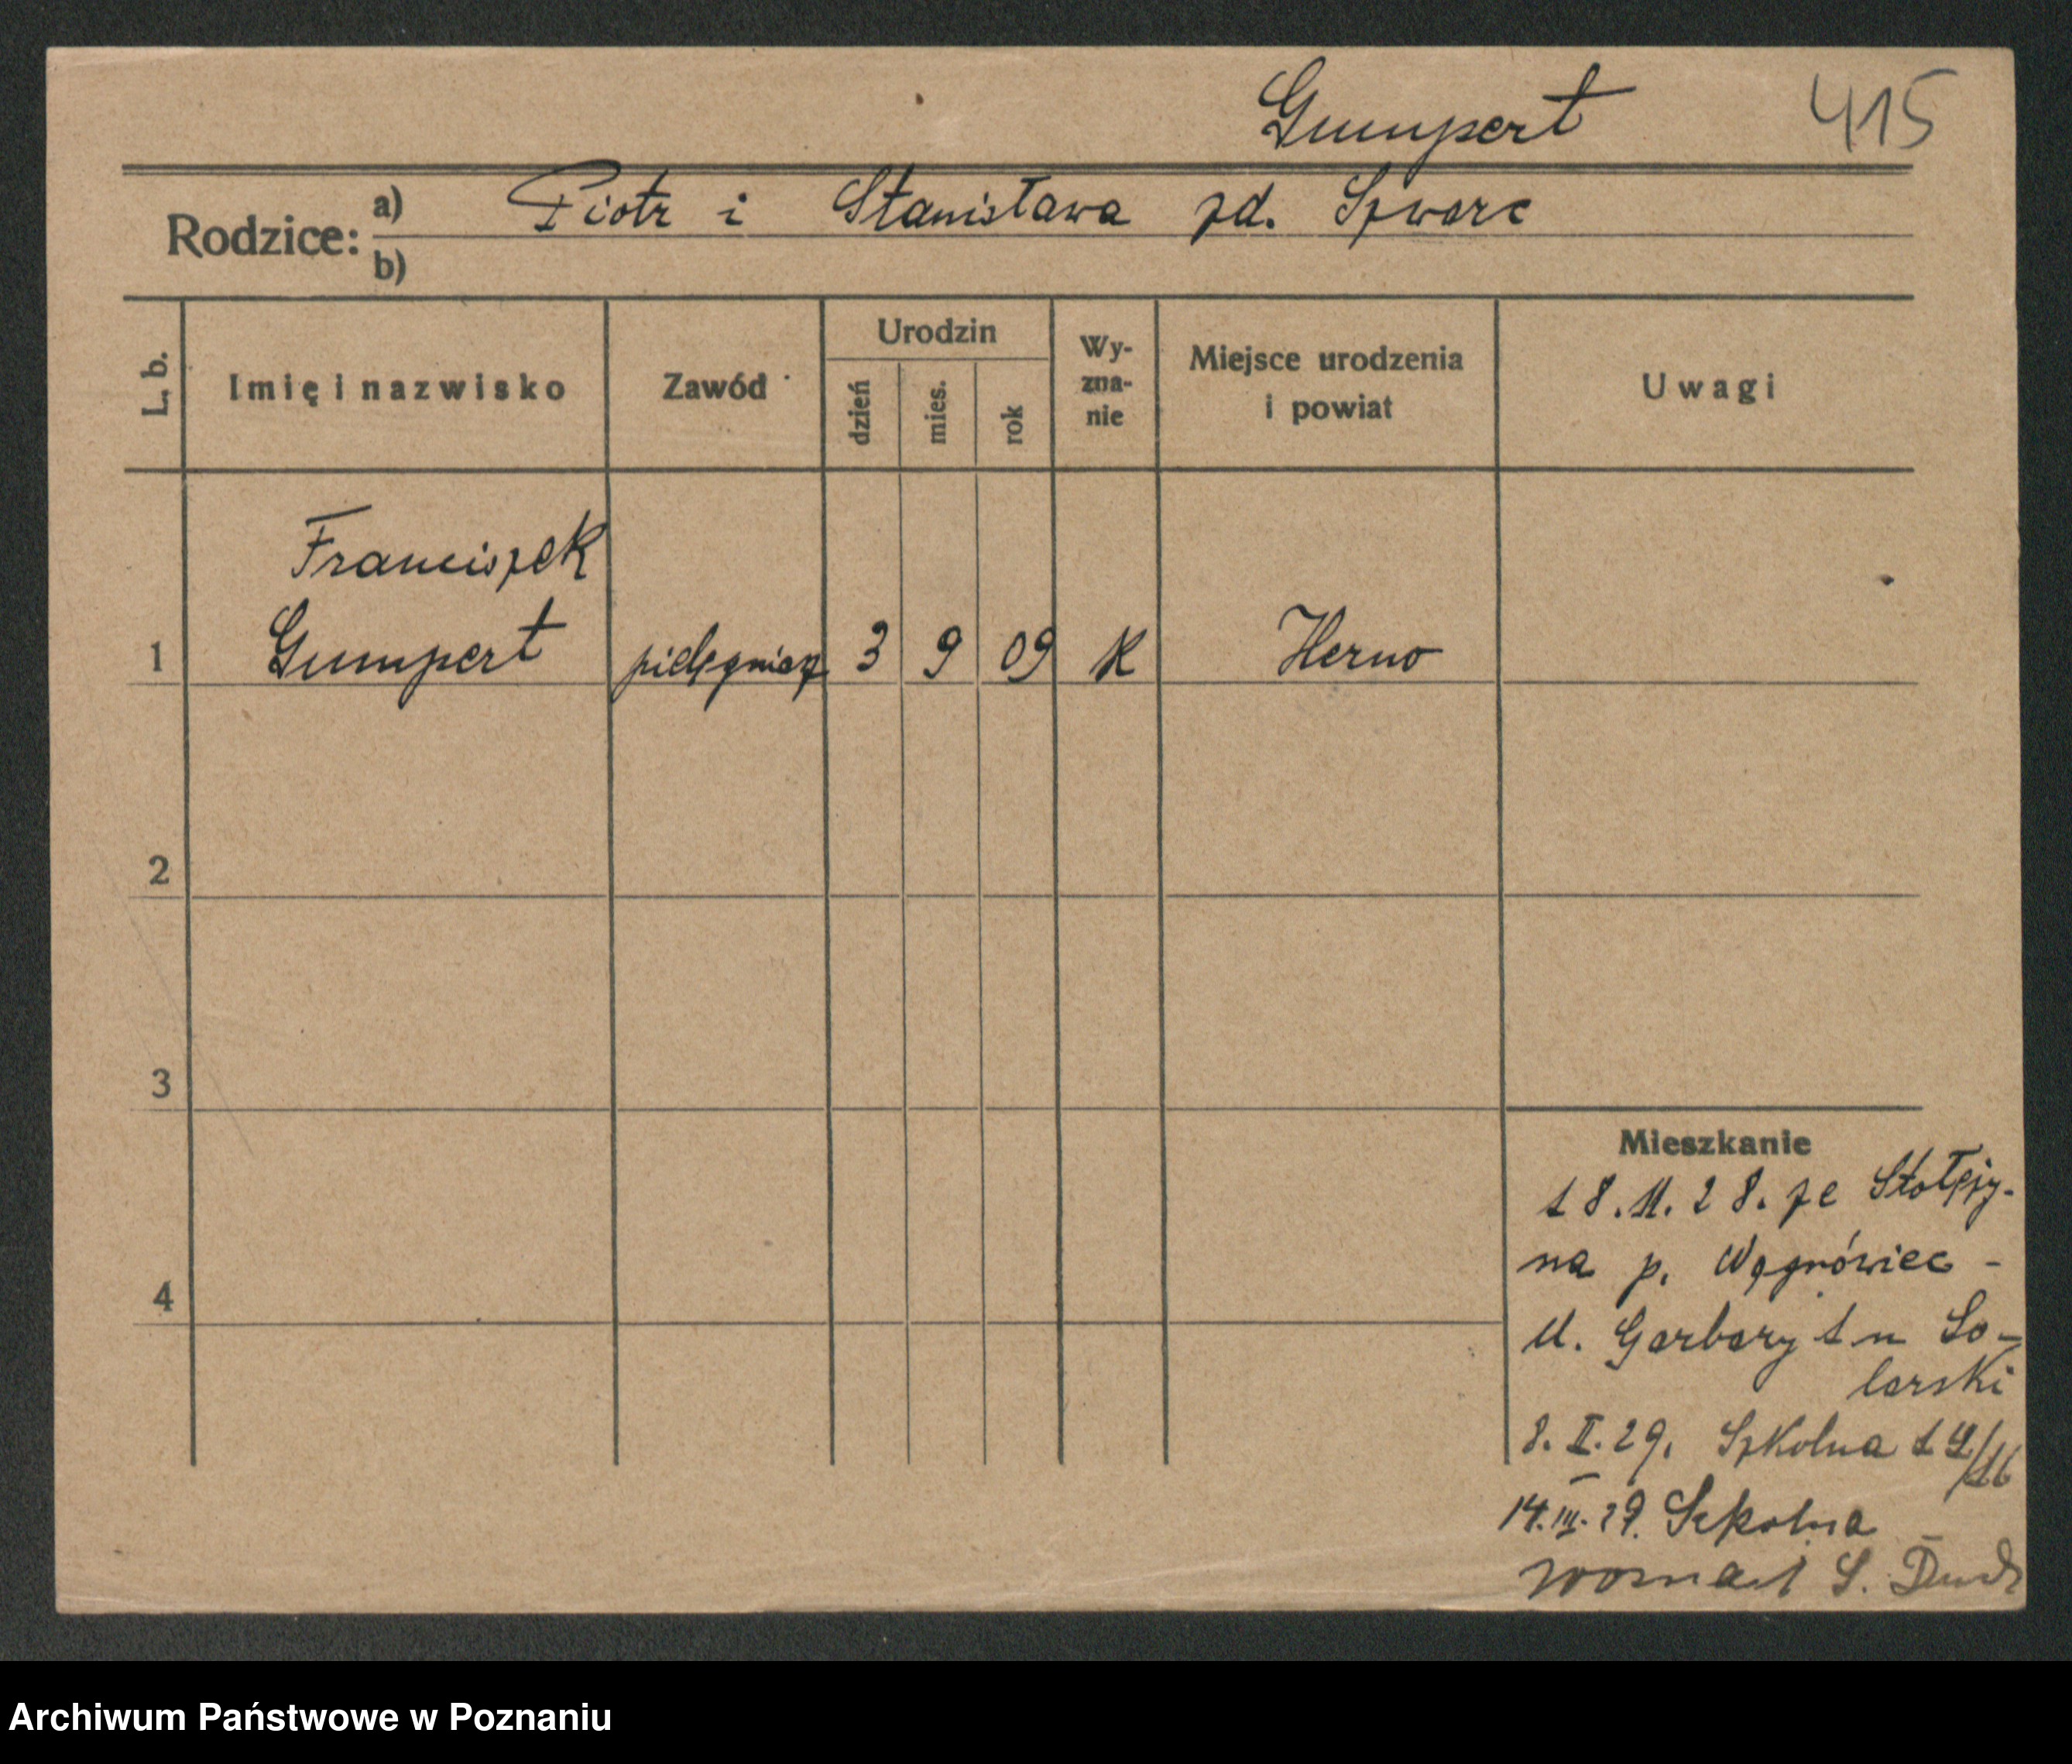 Gumpert 415
Rodzice: a) Piotr i Stanisława zd. Szwarc
b)
L. b. Imię i nazwisko Zawód Urodzin dzień mies. rok Wyznanie Miejsce urodzenia i powiat Uwagi
Franciszek
1 Gumpert pielęgniarz 3 9 09 K Herno
2
3
Mieszkanie
18.11.28. ze Stołęży-
na p. Wągrówiec -
4
ul. Garbary 1 u So-
larski
8.II.29. Szkolna 14/16
14.III.29. Szkolna
S.
Archiwum Państwowe w Poznaniu